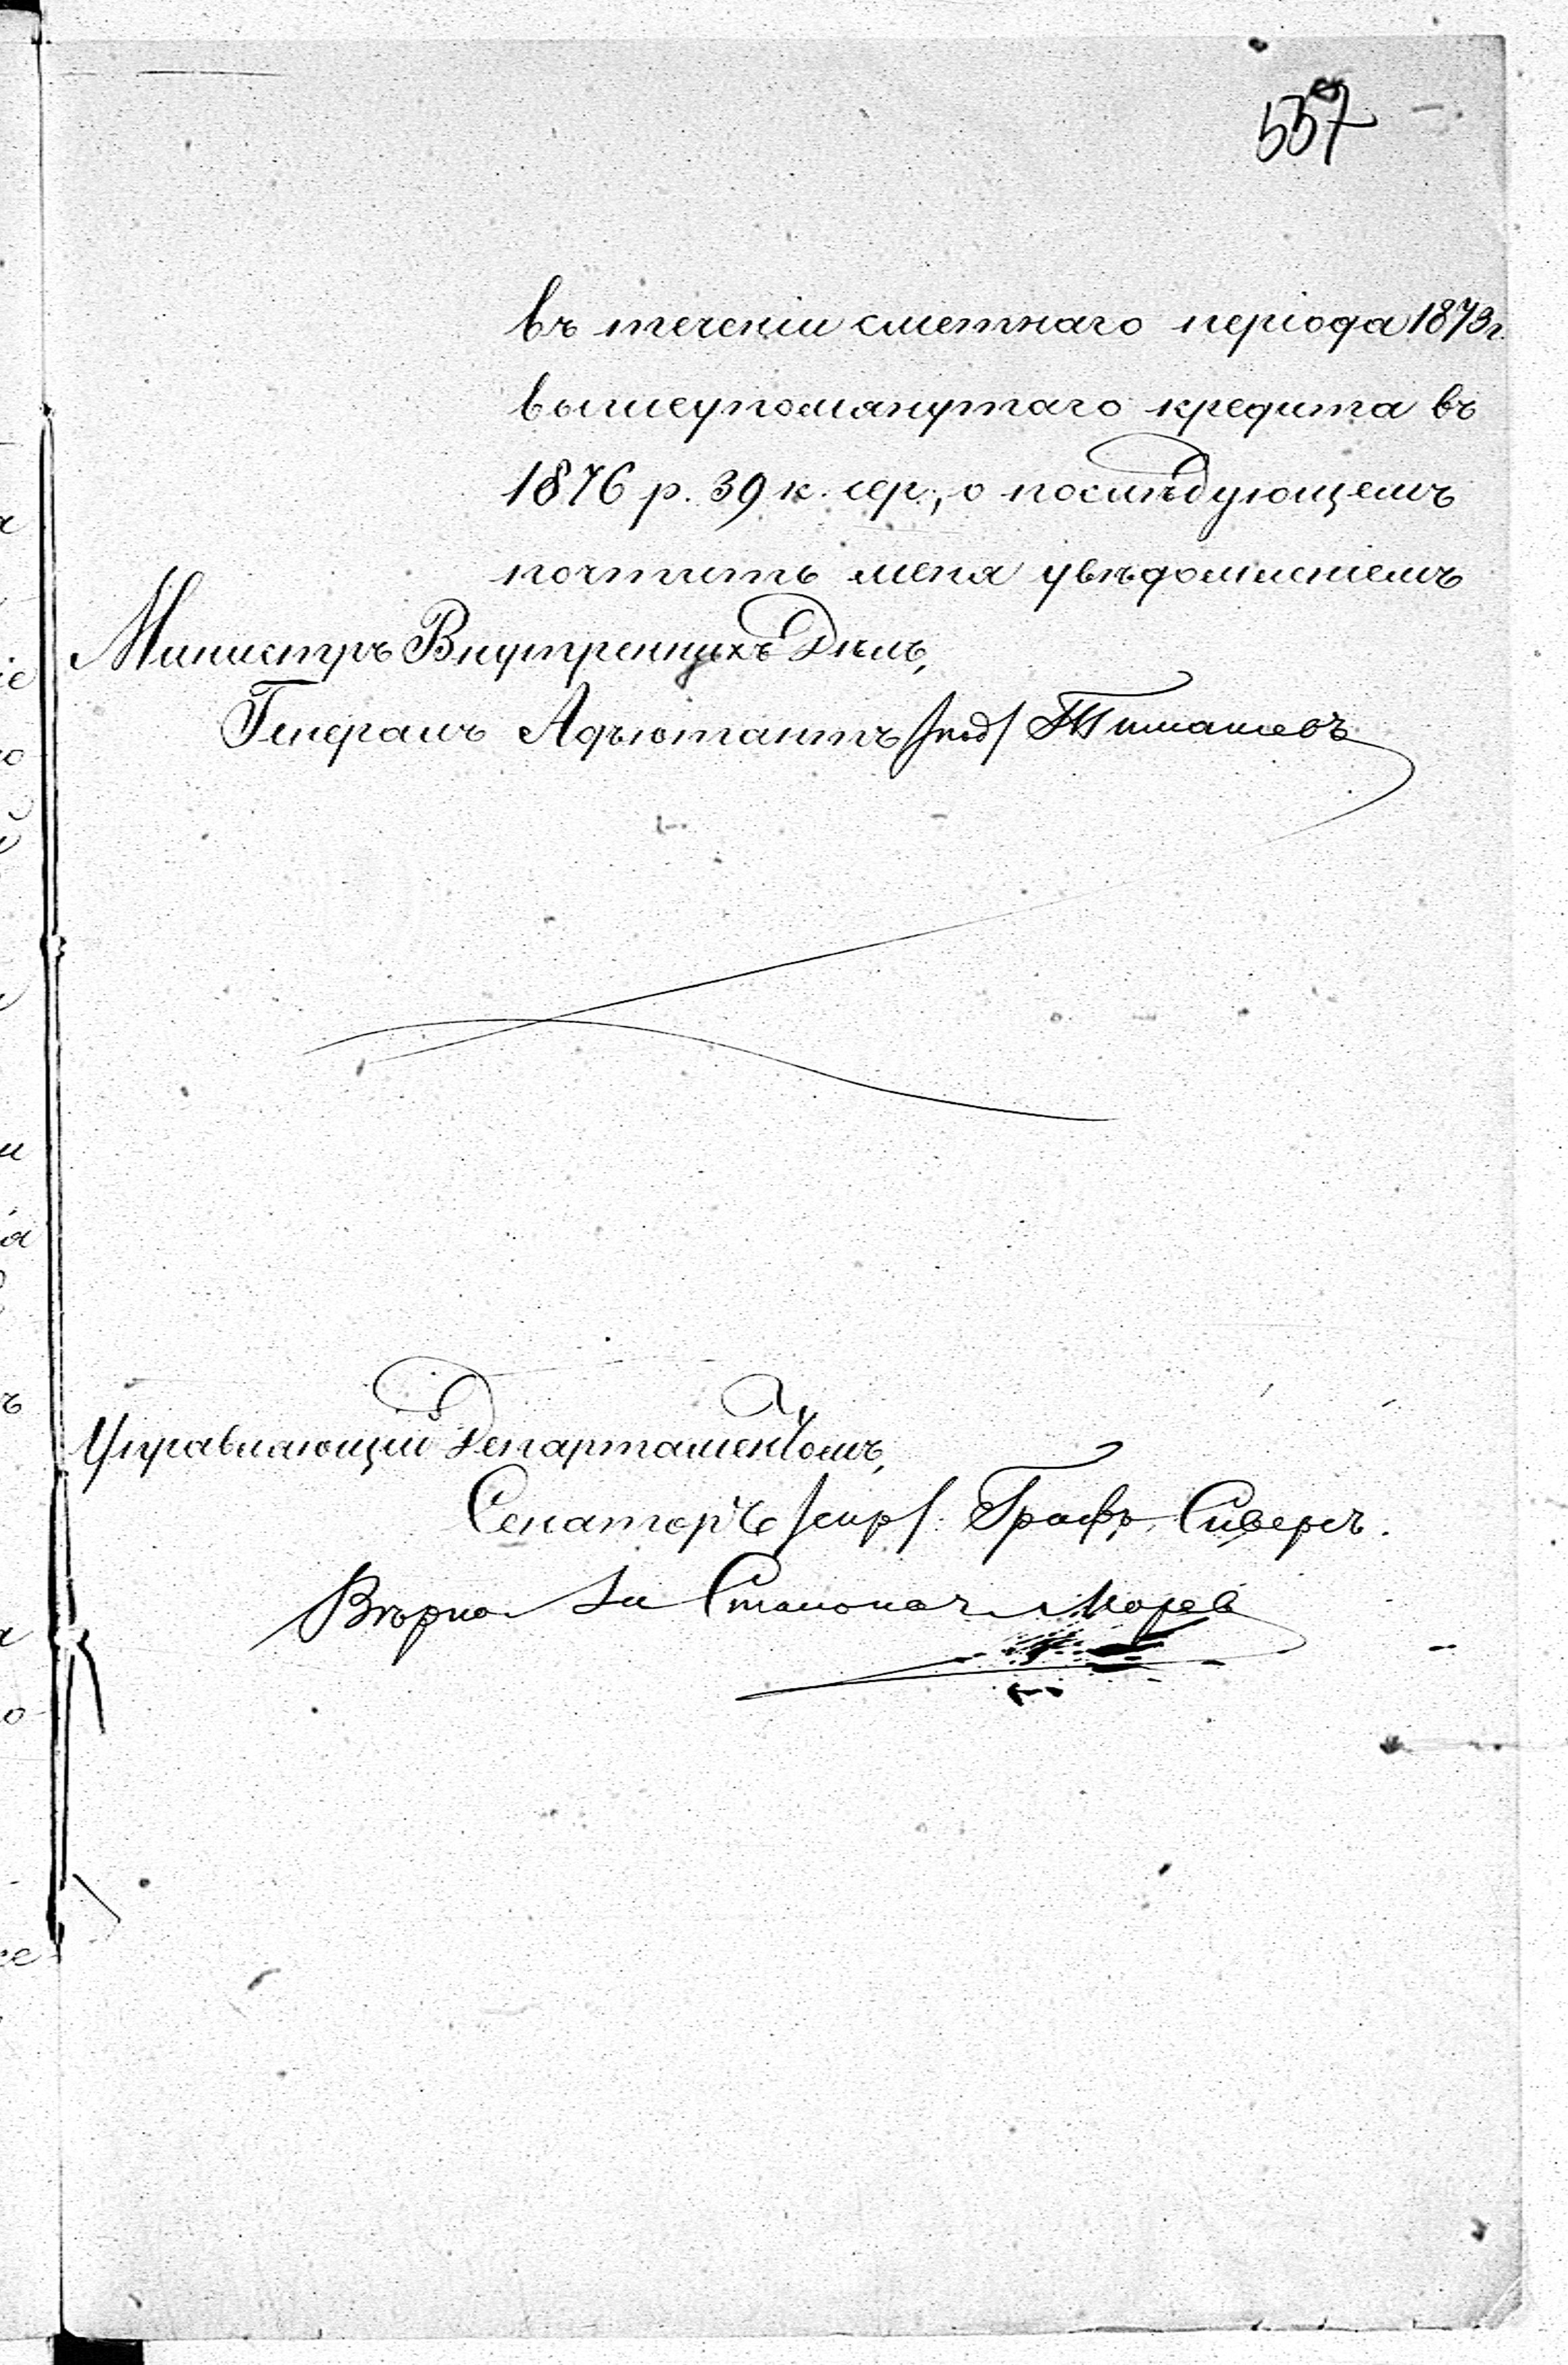 557
въ теченіи сметнаго періода 1873 г.
вышеупомянутаго кредита въ
1876 р. 39 к. сер., о послѣдующемъ
почтить меня увѣдомленіемъ
Министръ Внутреннихъ Дѣлъ,
Генералъ Адъютантъ /под/ Тимашевъ
Управляющій Департаментомъ,
Сенаторъ /скр/ Графъ Сиверсъ.
Вѣрно За Столонач